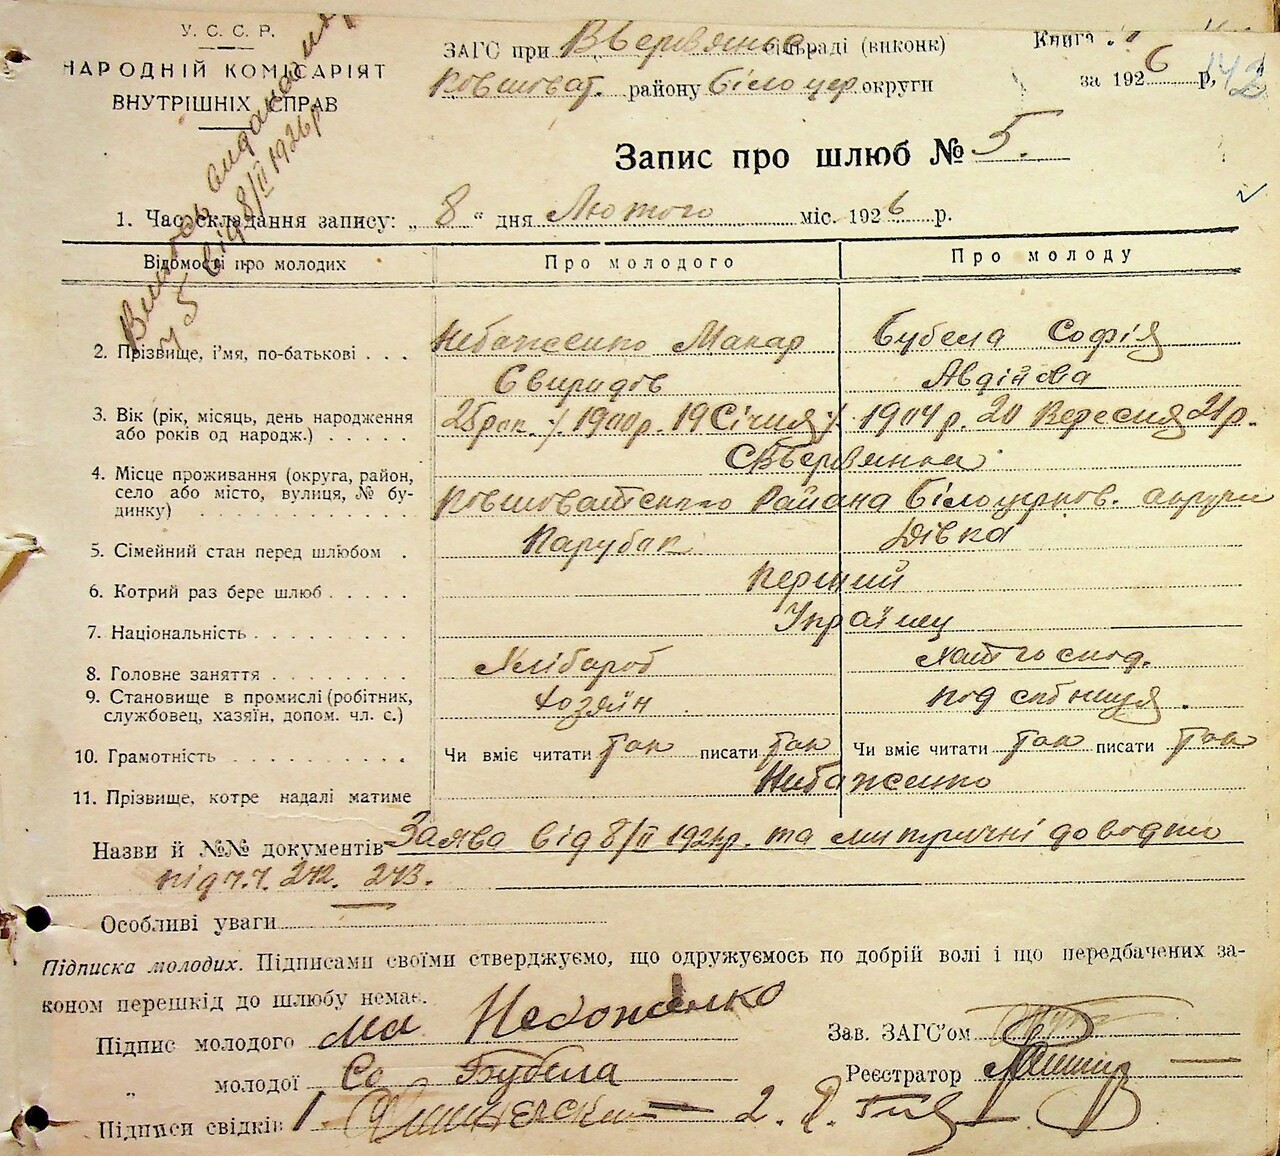 У. С. С. Р.
НАРОДНІЙ КОМІСАРІЯТ
ВНУТРІШНІХ СПРАВ
ЗАГС при сільраді (виконк)
району Білоцер. округи
Книга
за 1926 р.
142
від 8/II 1926 р
Запис про шлюб № 5.
1. Час складання запису: „ 8 “ дня Лютого міс. 1926 р.
Відомості про молодих
Про молодого
Про молоду
2. Прізвище, і'мя, по-батькові . . .
Небаженко Макар
Свиридів
Бубела Софія
Авдіївна
3. Вік (рік, місяць, день народження
або років од народж.) . . . . .
25 рок. 1900 р. 19 Січня
1904 р. 20 Вересня 21 р.
4. Місце проживання (округа, район,
село або місто, вулиця, № бу-
динку) . . . . . . . . . .
Района Білоцерков. округи
5. Сімейний стан перед шлюбом .
Парубак
Дівка
6. Котрий раз бере шлюб . . . . .
перший
7. Національність . . . . . . . . .
Українец
8. Головне заняття . . . . . . . .
Хлібароб
Хатгоспод.
9. Становище в промислі (робітник,
службовец, хазяїн, допом. чл. с.)
Хозяїн
10. Грамотність . . . . . . . . . . .
Чи вміє читати так писати так
Чи вміє читати так писати так
11. Прізвище, котре надалі матиме
Небаженко
Назви й №№ документів Заява від 8/II та доводки
під ч.ч. 242. 243.
Особливі уваги
Підписка молодих. Підписами своїми стверджуємо, що одружуємось по добрій волі і що передбачених за-
коном перешкід до шлюбу немає.
Підпис молодого Ма Небоженко
„ молодої Со Бубела
Підписи свідків 1. 2.
Зав. ЗАГС'ом
Реєстратор